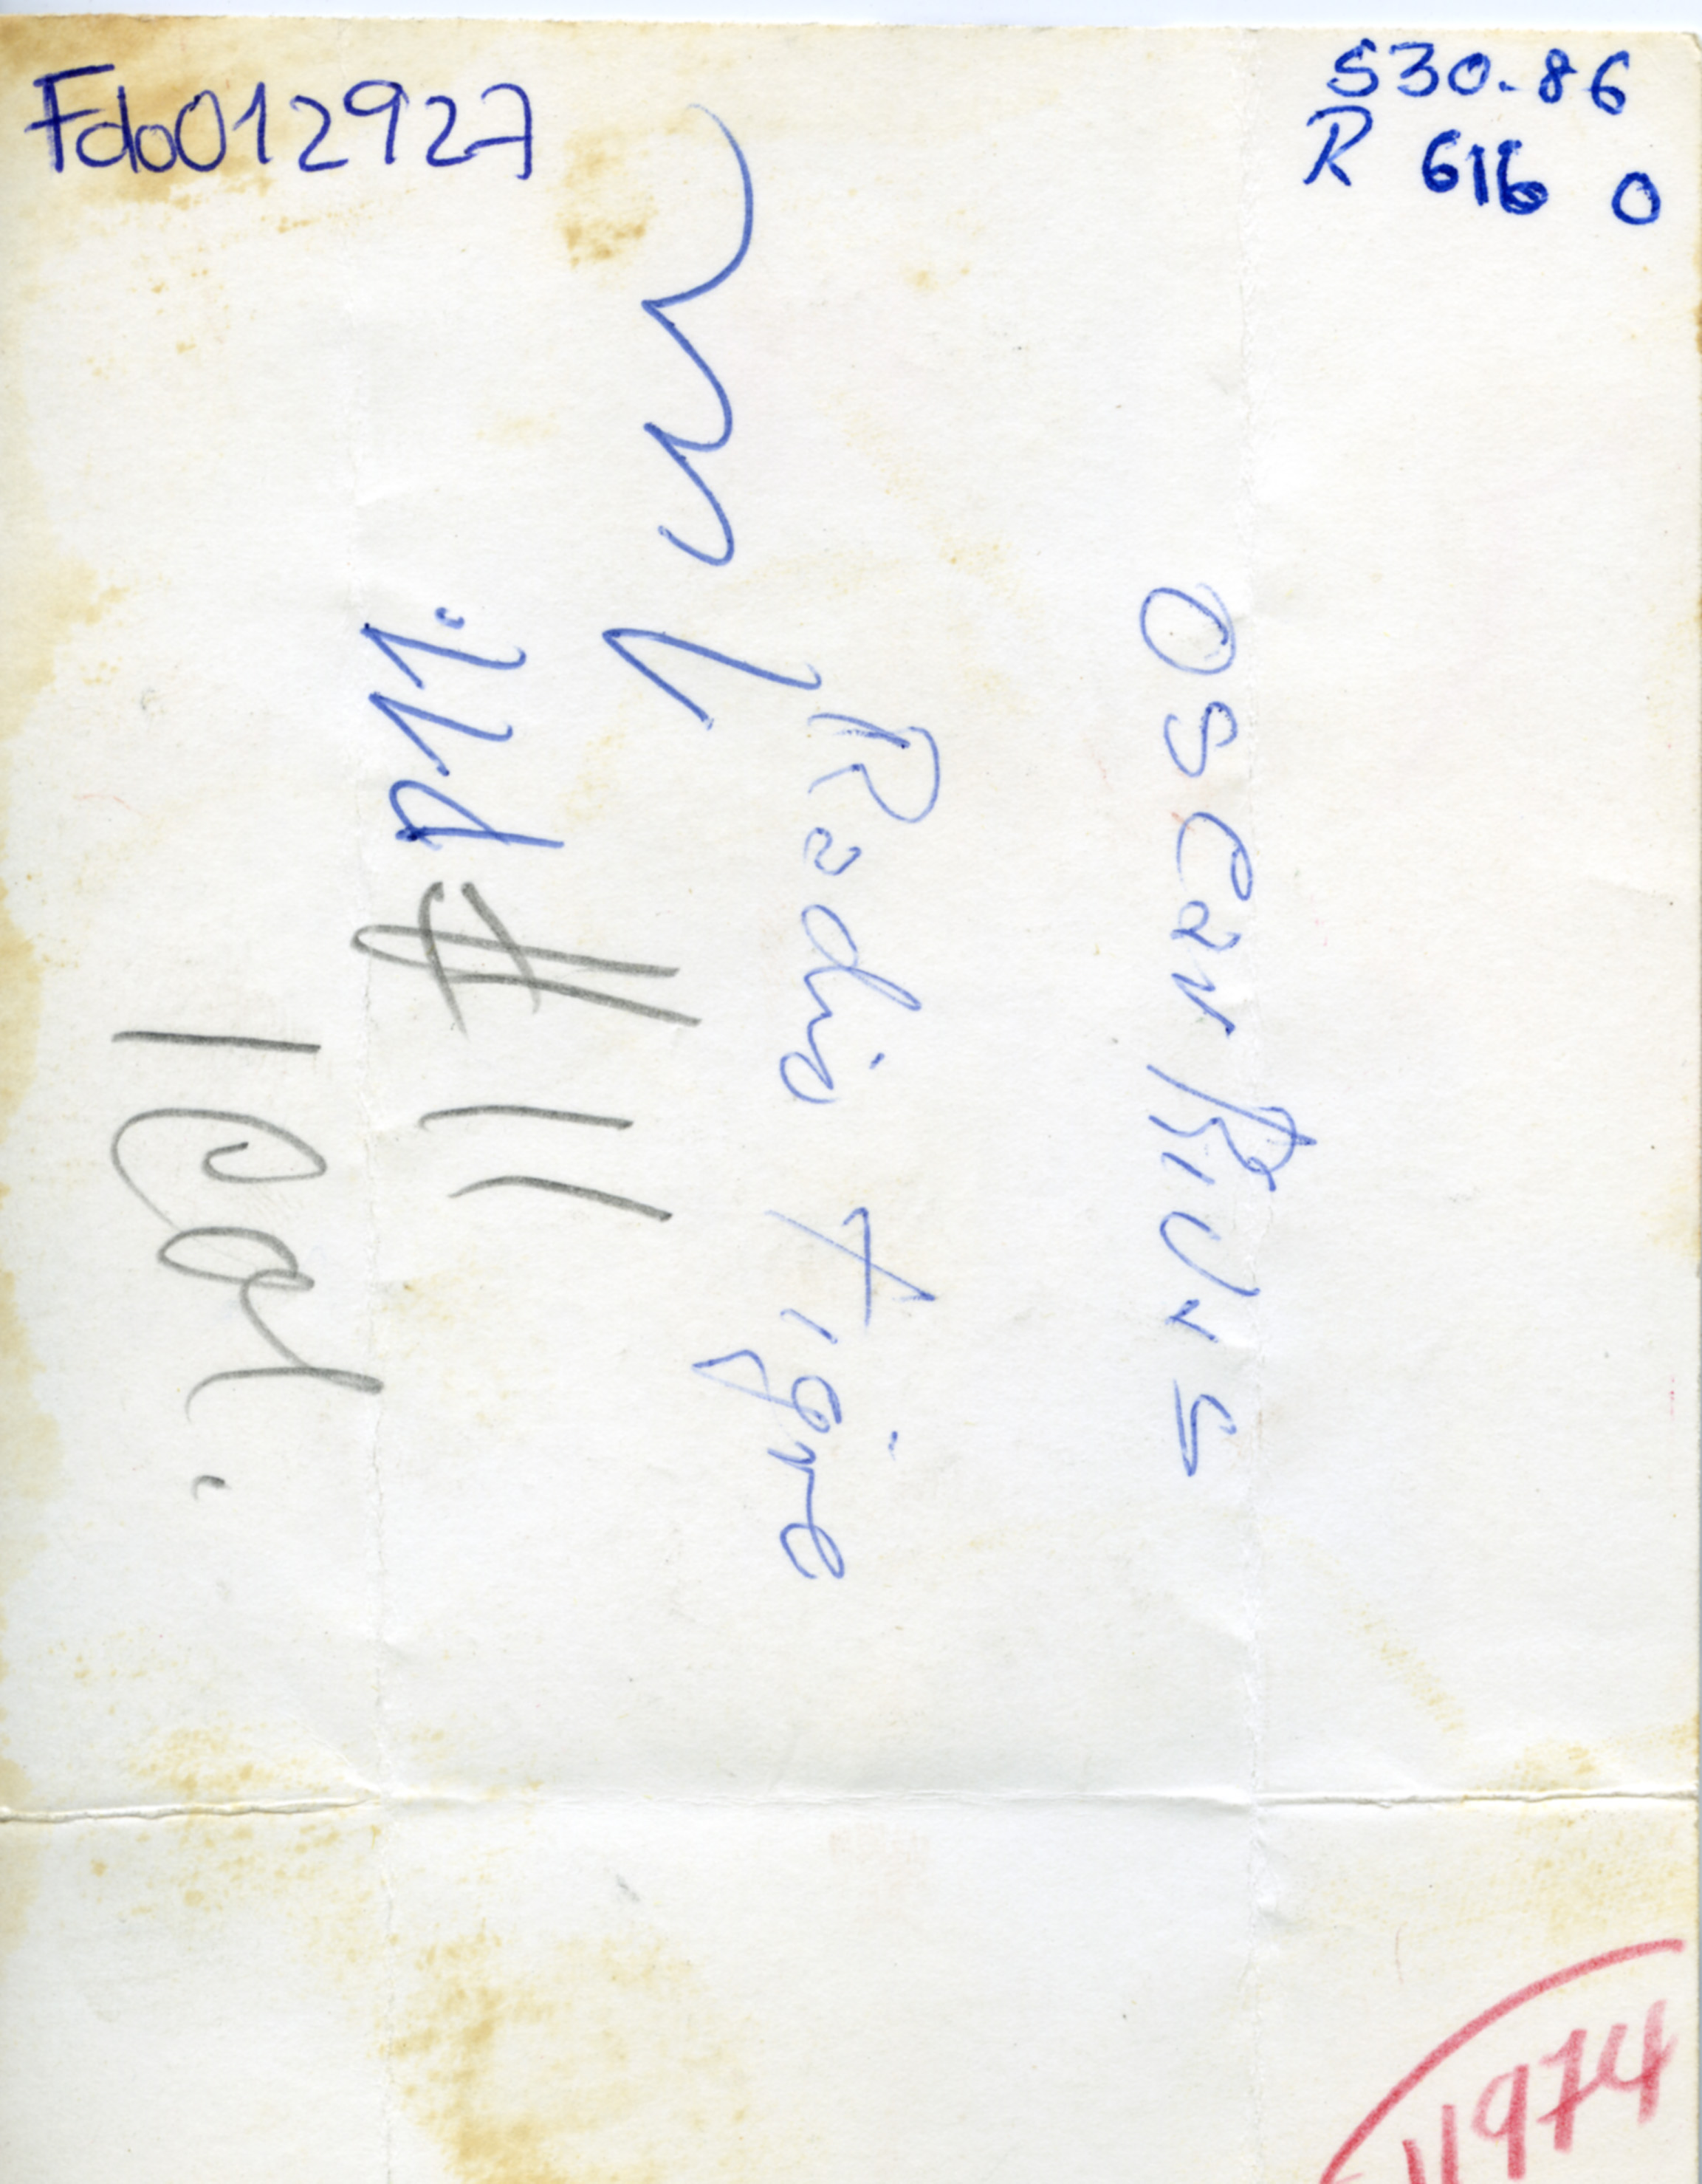 Fdo012927
530.86
R 616 0
OSCAR RIUNS
Radio Tigre
# 11
1 Col.
11974